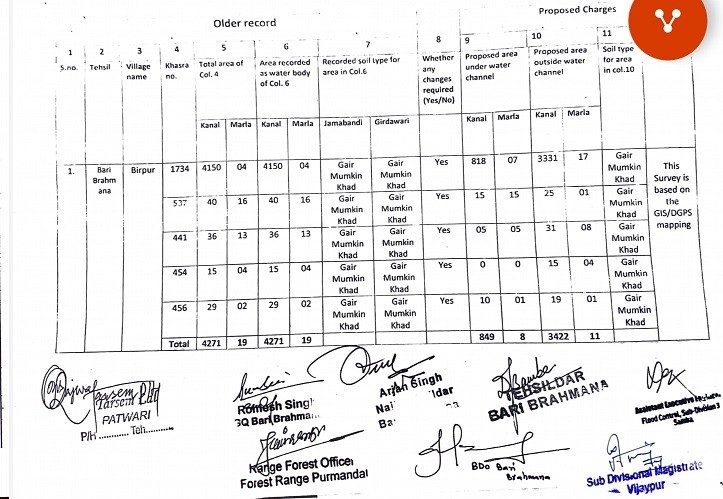 Older record
Proposed Charges
1 2 3 4 5 6 7 8 9 10 11
S.no. Tehsil Village name Khasra no. Total area of Col. 4 Area recorded as water body of Col. 6 Recorded soil type for area in Col.6 Whether any changes required (Yes/No) Proposed area under water channel Proposed area outside water channel Soil type for area in col.10
Kanal Marla Kanal Marla Jamabandi Girdawari Kanal Marla Kanal Marla
1. Bari Brahm ana Birpur 1734 4150 04 4150 04 Gair Mumkin Khad Gair Mumkin Khad Yes 818 07 3331 17 Gair Mumkin Khad This Survey is based on the GIS/DGPS mapping
537 40 16 40 16 Gair Mumkin Khad Gair Mumkin Khad Yes 15 15 25 01 Gair Mumkin Khad
441 36 13 36 13 Gair Mumkin Khad Gair Mumkin Khad Yes 05 05 31 08 Gair Mumkin Khad
454 15 04 15 04 Gair Mumkin Khad Gair Mumkin Khad Yes 0 0 15 04 Gair Mumkin Khad
456 29 02 29 02 Gair Mumkin Khad Gair Mumkin Khad Yes 10 01 19 01 Gair Mumkin Khad
Total 4271 19 4271 19 849 8 3422 11
PATWARI
P/H ............ Teh..........
Romesh Singh
Bari Brahma
Arjan Singh
TEHSILDAR
BARI BRAHMANA
Assistant Executive
Flood Control, Sub-Division 3
Samba
Range Forest Officer
Forest Range Purmandal
BDO Bari
Brahmana
Sub Divisional Magistrate
Vijaypur